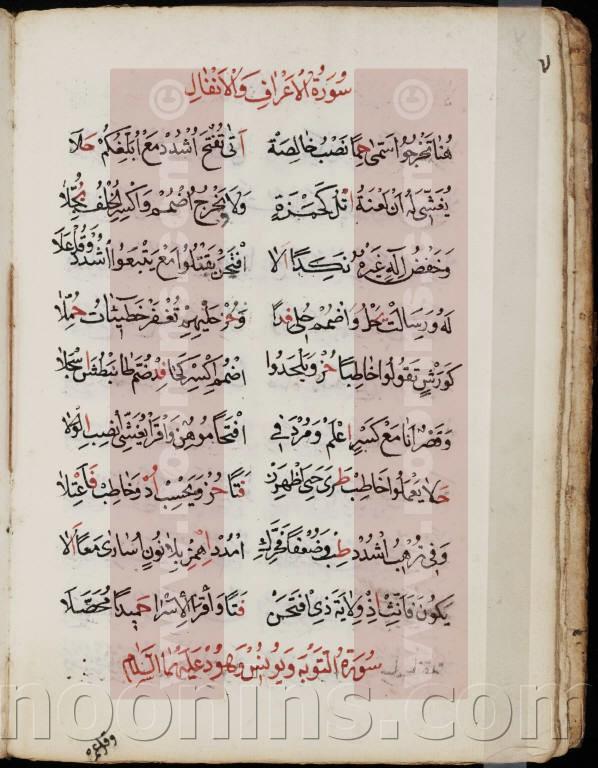 ٧
سورة الاعراف والانفال
هنا تخرجوا اسمى حما نصب خالصة اتى تفتح اشدد مع ابلغكم حلا
يغشى له ان لعنة اتل كحمزة ولا يخرج اضمم واكسر الخلف بجلا
وخفض اله غيره نكدا الا افتحن يقتلوا مع يتبعوا اشدد وقل علا
له ورسالت يحل واضمم حلى فدا وحز حليهم تغفر خطيئات حملا
كورش تقولوا خاطبا حز ويلحدوا اضمم اكسر كحا فد ضم طا يبطش اسجلا
وقصر انا مع كسر اعلم ومردفى افتحا موهن واقرا يغشى انصب الولا
حلا يعملوا خاطب طرى حى اظهرن فتا حز ويحسب اد وخاطب فاعتلا
وفى ترهبوا اشدد طب وضعفا فحرك امدد اهمز بلا نون اسارى معا الا
يكون فانث اذ ولاية ذى افتحن فتا واقرا الاسرا حميدا محصلا
سورة التوبة ويونس وهود عليهما السلام
noonins.com